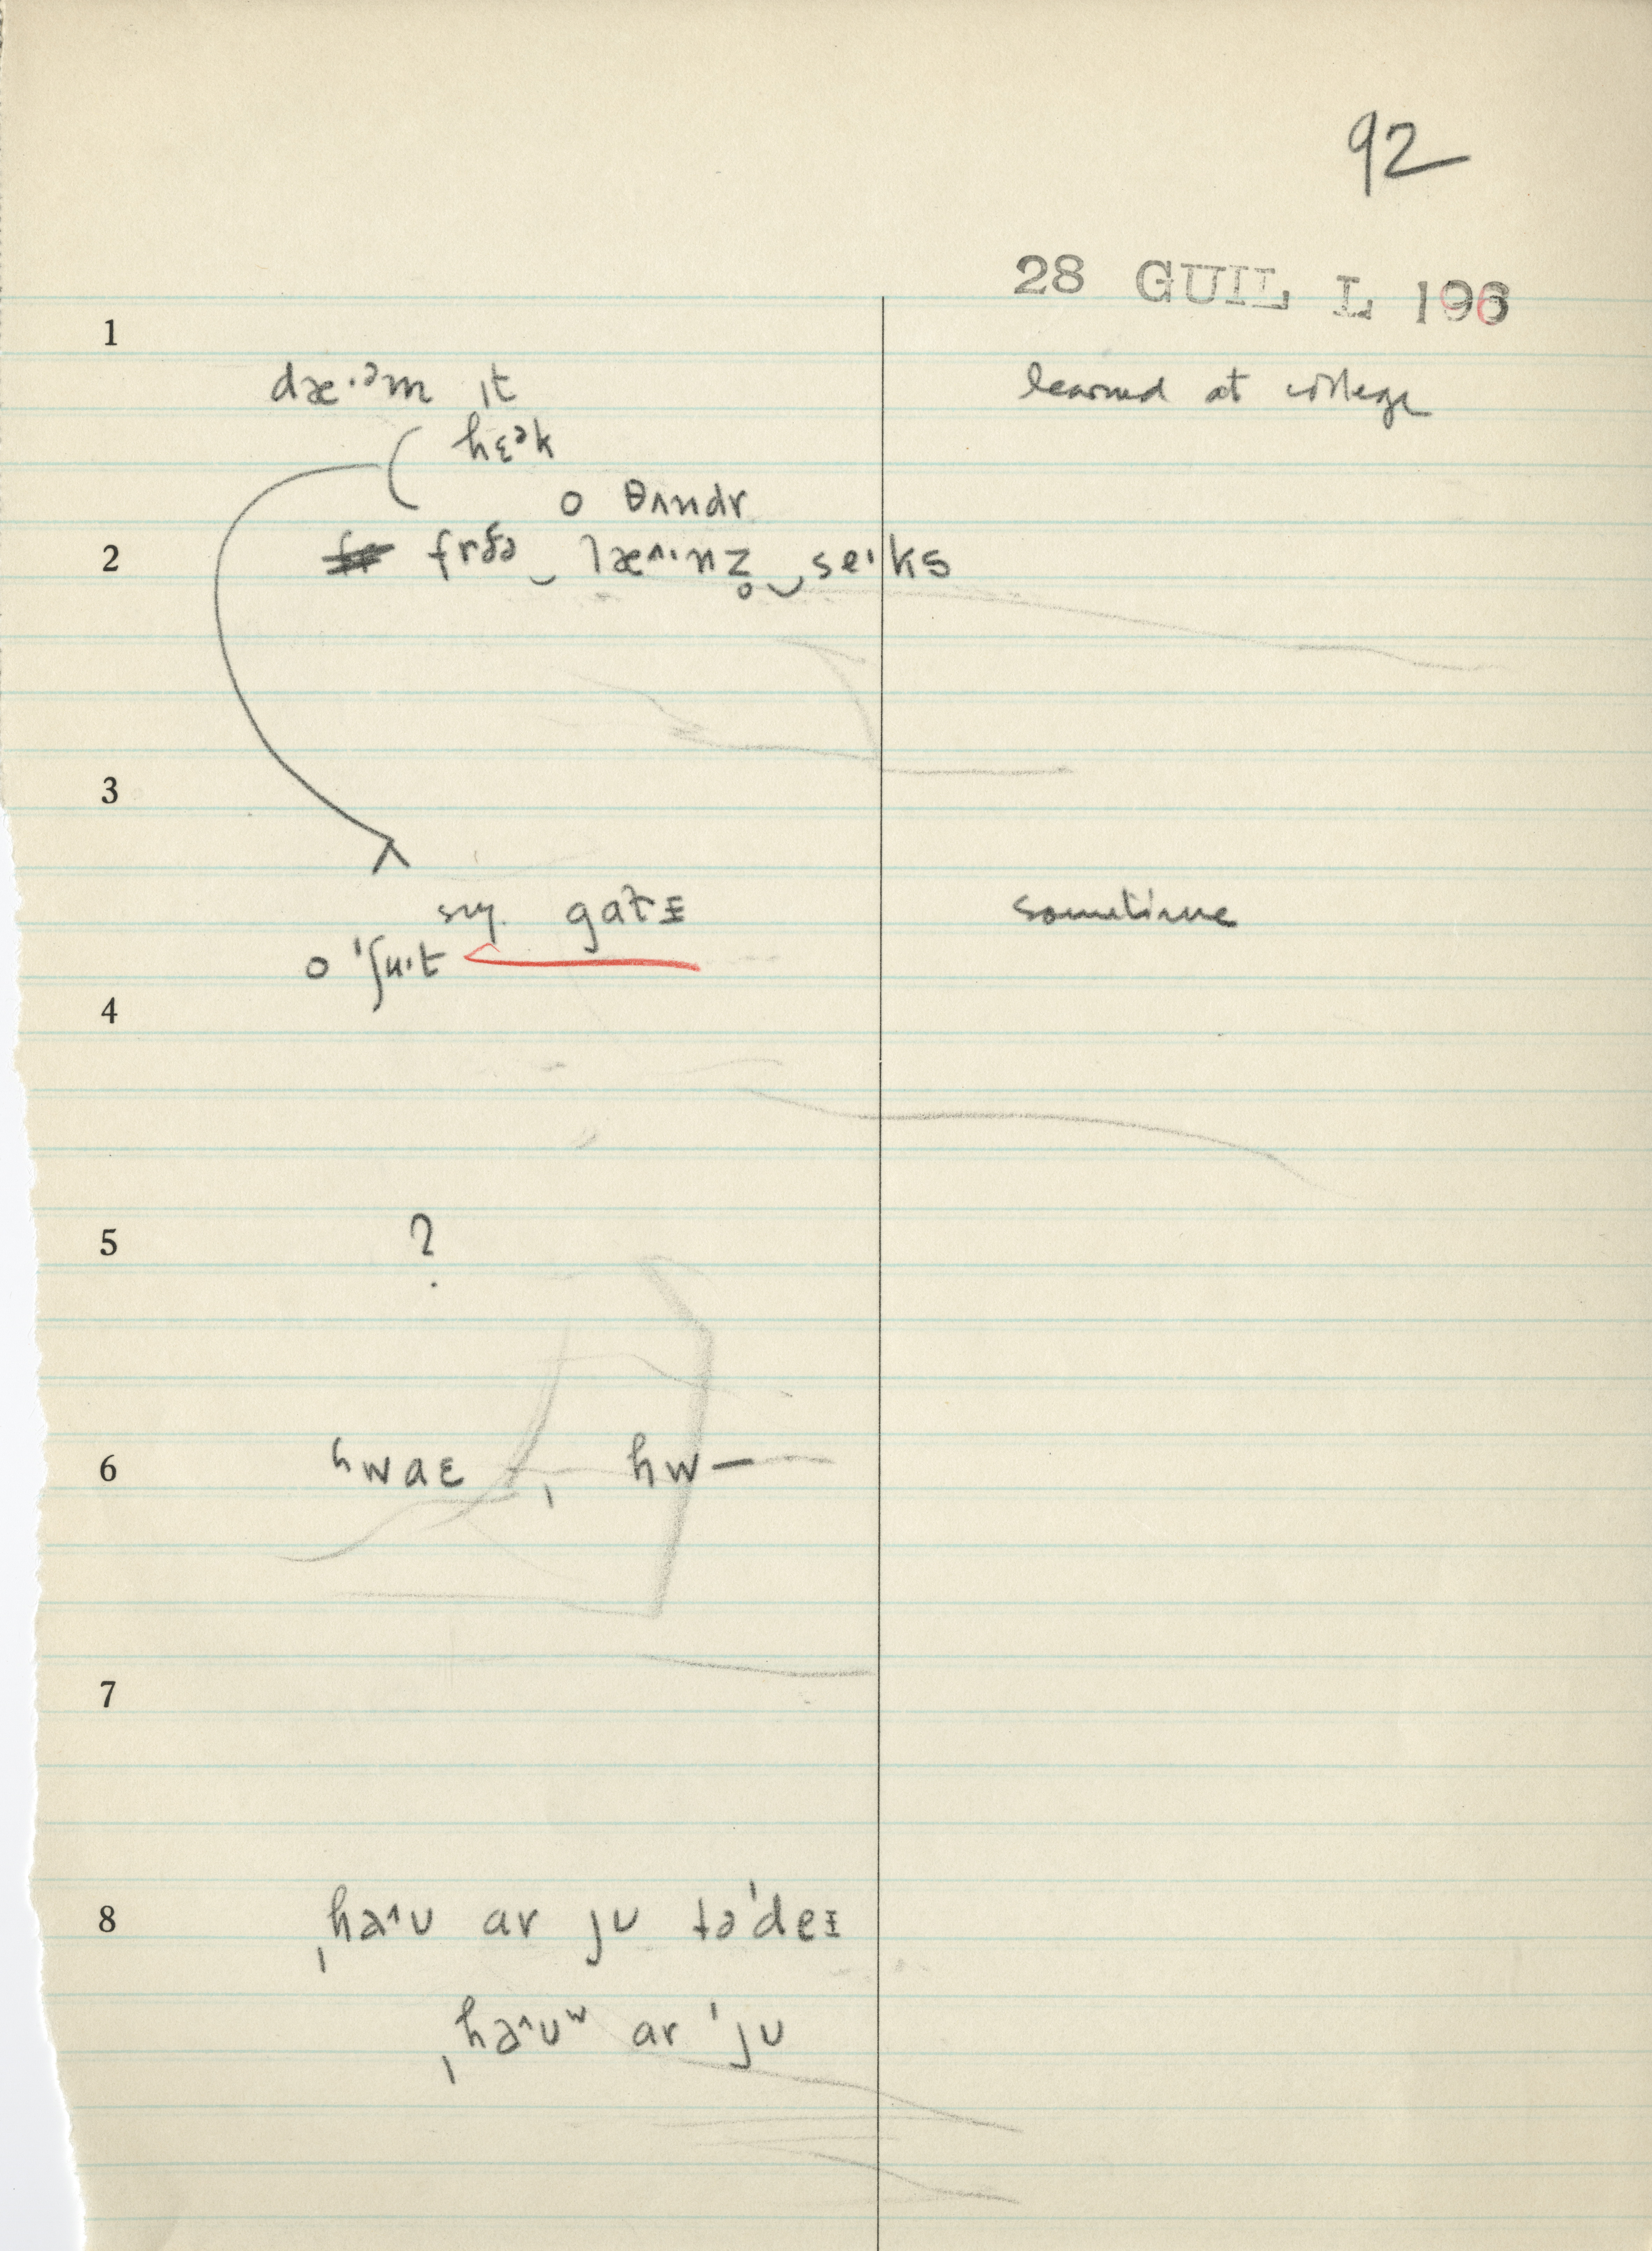 92
28 GUIL L 196
1
dæ·ᵊm ɪt learned at college
( hɛᵊk
o θʌndr
2 frðə‿læ^·nz̥‿se'ks
3
sɪŋ. gatɪ sometime
o 'ʃu·t
4
5 ?
6 ʰwaɛ , hw—
7
8 ˌhə^ʊ ar jʊ tə'deɪ
ˌhə^ʊʷ ar 'jʊ